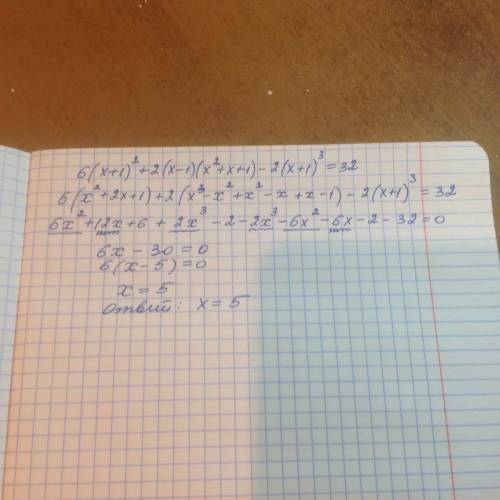 6(x+1)² + 2(x-1)(x²+x+1) - 2(x+1)³ = 32
6(x²+2x+1) + 2(x³-x²+x²-x+x-1) - 2(x+1)³ = 32
6x² + 12x + 6 + 2x³ - 2 - 2x³ - 6x² - 6x - 2 - 32 = 0
6x - 30 = 0
6(x-5) = 0
x = 5
ответ: x = 5